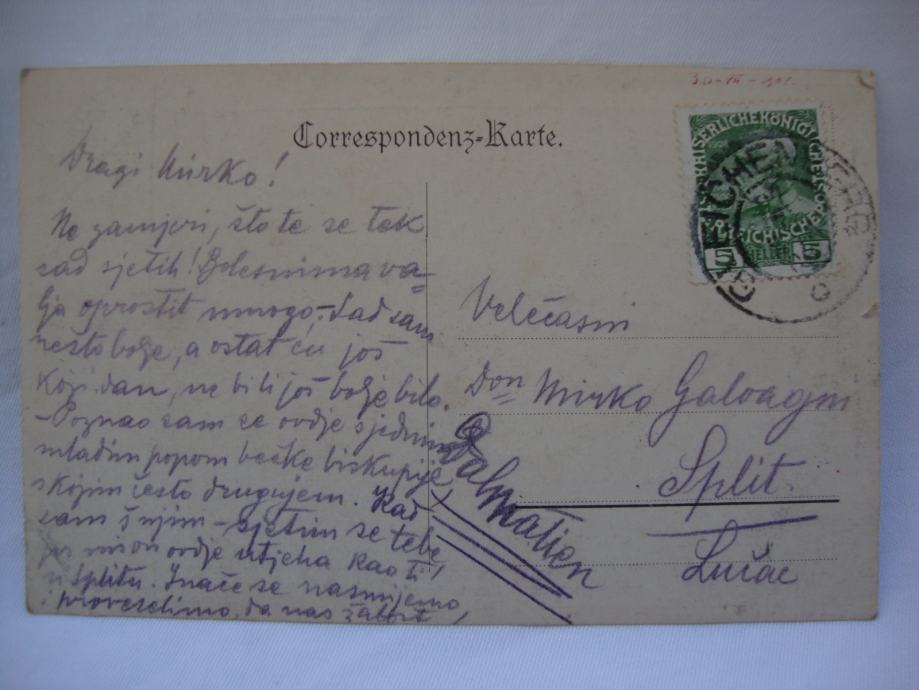 Correspondenz-Karte.
Dragi Mirko!
Ne zamjeri, što te se tek
sad sjetih! Bolesnima va=
lja oprostit mnogo. Sad sam
nešto bolje, a ostat ću još
koji dan, ne bi li još bolje bilo.
- Poznao sam se ovdje s jednim
mladim popom bečke biskupije,
s kojim često drugujem. Kad
sam š njim - sjetim se tebe
jer mi on ovdje utjeha kao ti
u Splitu. Inače se nasmijemo
i proveselimo, da nas žalost
KAISERLICHE KÖNIGLICHE
ÖSTERREICHISCHE
5 HELLER 5
GLEICHENBERG
Velečasni
Don Mirko
Split
Lučac
Dalmatien